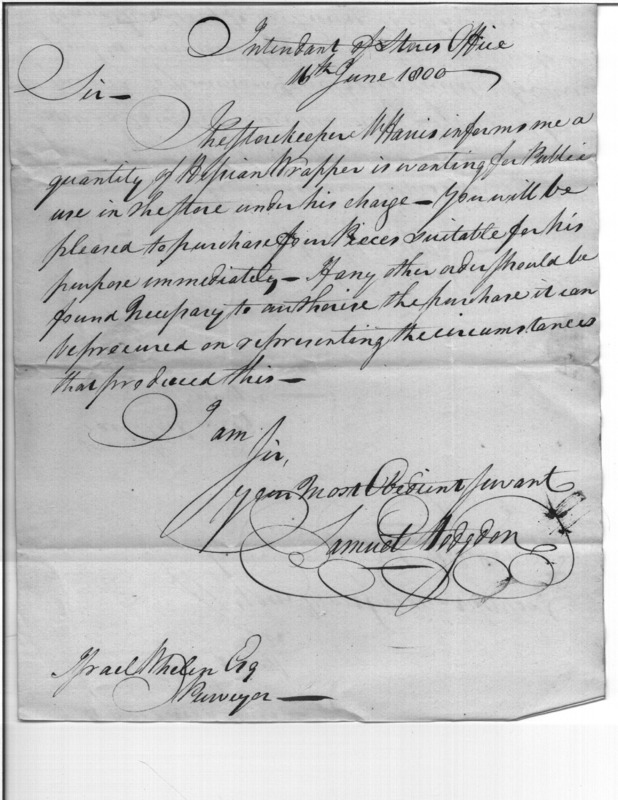 Intendant of Stores Office
16th June 1800
Sir—
The Storekeeper Mr Harris informs me a
quantity of Hessian Wrapper is wanting for Public
use in the Store under his charge— You will be
pleased to purchase four Pieces suitable for his
purpose immediately— If any other order should be
found necessary to authorise the purchase it can
be procured on representing the circumstances
that produced this—
I am
Sir,
your Most Obedient servant
Samuel Hodgdon
Israel Whelen Esq
Purveyor—